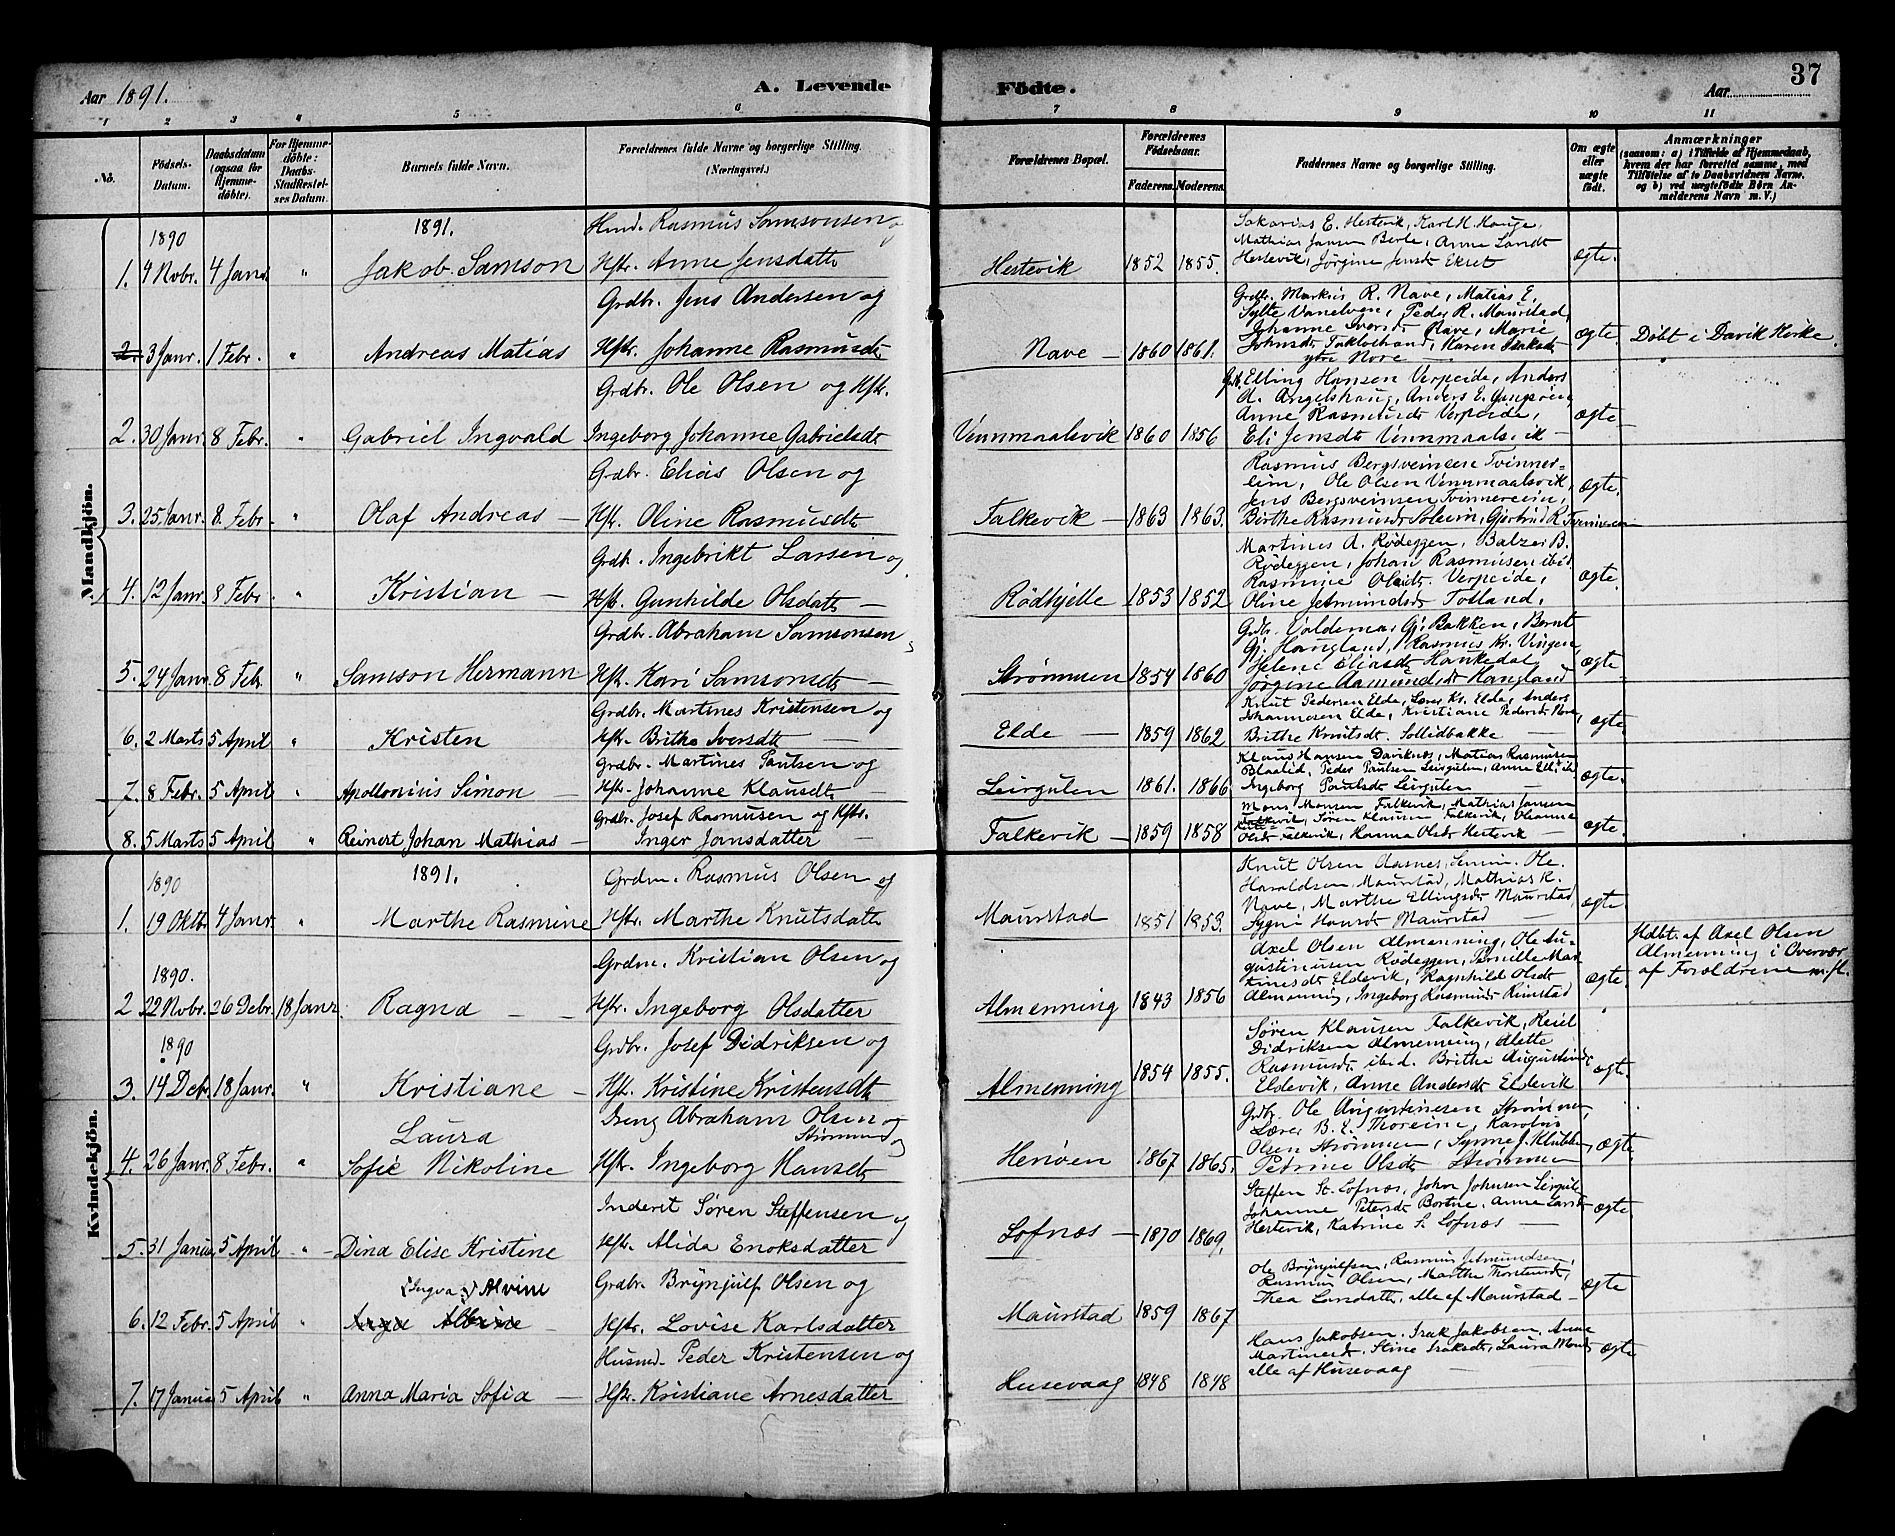 Aar 1891.
A. Levende Fødte.
Aar
37
1 2 3 4 5 6 7 8 9 10 11
No.
Fødsels-Datum.
Daabsdatum (ogsaa for Hjemmedøbte).
For Hjemmedøbte: Daabs-Stadfæstelses Datum.
Barnets fulde Navn.
Forældrenes fulde Navne og borgerlige Stilling. (Næringsvei.)
Forældrenes Bopæl.
Forældrenes Fødselsaar.
Faderens. Moderens.
Faddernes Navne og borgerlige Stilling.
Om ægte eller uægte født.
Anmærkninger
(saasom: a) i Tilfælde af Hjemmedaab,
hvem der har forrettet samme, med
Tilføielse af to Daabsvidners Navne,
og b) ved uægtefødte Børn An-
melderens Navn m. V.)
Mandkjøn.
1891.
1890
1. 4 Novbr. 4 Janr. " Jakob Samson
Husmd. Rasmus Samsonsen og
Hstr. Anne Jensdattr
Hestevik 1852 1855.
Sakarias E. Hestevik, Karl M. Hauge,
Mathias Jansen Berle, Anne Landt
Hestevik, Jørgine Jensdt Ekset
ægte.
2. 3 Janr. 1 Febr. " Andreas Matias
Grdbr. Jens Andersen og
Hstr. Johanne Rasmusdt
Nave — 1860 1861.
Grdbr. Markus R. Nave, Matias E.
Sylte Vanelven, Peder R. Maurstad,
Johanne Iversdt Nave, Marie
Johnsdt, Karen
ytre Nore —
ægte Døbt i Davik Kirke.
2. 30 Janr. 8 Febr. " Gabriel Ingvald
Grdbr. Ole Olsen og Hstr.
Ingeborg Johanne Gabrielsdt
Vennmaalsvik 1860 1856
Elling Hansen Verpeide, Anders
A. Angelshaug, Anders E.
Anne Rasmusdt Verpeide,
Eli Jensdt Vennmaalsvik —
ægte
3. 25 Janr. 8. Febr. " Olaf Andreas —
Grdbr. Elias Olsen og
Hstr. Oline Rasmusdt
Falkevik — 1863 1863.
Rasmus Bergsveinsen Tvinner-
eim, Ole Olsen Vennmaalsvik,
Jens Bergsveinsen Tvinnereim,
Birthe Rasmusdt Soleim, Gjertrud R. Tvinnereim
ægte.
4. 12 Janr. 8 Febr. " Kristian —
Grdb. Ingebrikt Larsen og
Hst. Gunhilde Olsdattr —
Rødhjelle 1853 1852
Martines A. Rødeggen, Balzer B.
Rødeggen, Johan Rasmusen ibid
Rasmine Olsdt. Verpeide,
Oline Jetmundsdt Totland.
ægte.
5. 24 Janr. 8 Febr. " Samson Hermann
Grdbr. Abraham Samsonsen
Hst. Kari Samsonsdt —
Strømmen 1854 1860
Grdbr. Valdemar Gj. Bakken, Bernt
Gj. Haugland, Rasmus Kr. Vingen,
Helene Eliasdt Hankedal
Jørgine Aamundsdt Haugland
ægte
6. 2 Marts 5 April " Kristen
Grdbr. Martines Kristensen og
Hstr. Brithe Iversdt
Elde — 1859 1862
Knut Pedersen Elde, Lærer Kr. Elde, Anders
Johannesen Elde, Kristiane Pedersdt Nore,
Brithe Knutsdt. Sollidbakke —
ægte.
7. 8 Febr. 5 April " Apollonius Simon —
Grdbr. Martines Paulsen og
Hstr. Johanne Klausdt
Leirgulen 1861. 1866
Klaus Hansen Daviknes, Matias Rasmusen
Blaalid, Peder Paulsen Leirgulen, Anne
Ingeborg Paulsdt Leirgulen —
ægte.
8. 5 Marts 5 April " Reinert Johan Mathias —
Grdbr. Josef Rasmusen og Hstr.
Inger Jansdatter —
Falkevik — 1859 1858
Mons Monsen Falkevik, Mathias Jansen
Falkevik, Søren Klausen Falkevik, Olianne
Olsdt Falkevik, Hanna Olsdt Hestevik —
ægte.
Kvindekjøn.
1891.
1890
1. 19 Oktbr 4 Janr. " Marthe Rasmine
Grdm. Rasmus Olsen og
Hstr. Marthe Knutsdattr
Maurstad 1851 1853.
Knut Olsen Aasnes, Semin. Ole
Haraldsen Maurstad, Mathias R.
Nave, Marthe Ellingsdt Maurstad
Sygni Hansdt Maurstad —
ægte
1890.
2 22 Novbr. 26 Debr. 18 Janr. Ragna — —
Grdm. Kristian Olsen og
Hstr. Ingeborg Olsdatter
Almenning 1843 1856
Axel Olsen Almenning, Ole Au-
gustinusen Rødeggen, Pernille Mar-
tinesdt Eldevik, Ragnhild Olsdt
Almenning, Ingeborg Rasmusdt Rimstad
ægte.
Hdbt. af Axel Olsen
Almenning i Overvær
af Forældrene m. fl.
1890
3. 14 Debr. 18 Janr. " Kristiane —
Grdbr. Josef Didriksen og
Hstr. Kristine Kristensdt
Almenning 1854 1855.
Søren Klausen Falkevik, Reiel
Didriksen Almenning, Alette
Rasmusdt ibid. Brithe Augustinusdt
Eldevik, Anne Andersdt Eldevik
ægte.
4. 26 Janr. 8 Febr. " Laura
Sofie Nikoline
Dreng Abraham Olsen
Strømmen og
Hstr. Ingeborg Hansdt
Henøen 1867 1865.
Grdbr. Ole Augustinesen Strømmen,
Lærer B. E. Thoreine, Karolus
Olsen Strømmen, Synne J. Klubben,
Petrine Olsdt Strømmen
ægte.
5. 31 Januar 5 April " Dina Elise Kristine
Inderst Søren Steffensen og
Hstr. Alida Enoksdatter
Lofnæs — 1870 1869.
Steffen St. Lofnæs, John Johnsen Leirgulen
Johanne Petersdt Bortne, Anne Larsdt
Hestevik, Katrine S. Lofnæs —
ægte.
6. 12 Febr. 5 April " (Ingva) Alvine
Grdbr. Brynjulf Olsen og
Hstr. Lovise Karlsdatter
Maurstad 1859 1867
Ole Brynjulfsen, Rasmus Jetmundsen,
Rasmus Olsen, Marthe Thorsteinsdt,
Thea Larsdattr, alle af Maurstad —
ægte
7. 17 Januar 5 April " Anna Maria Sofia —
Husmd. Peder Kristensen og
Hstr. Kristiane Arnesdatter
Husevaag 1848 1848
Hans Jakobsen, Isak Jakobsen, Anne
Martinesdt, Stine Isaksdt, Laura Monsdt
alle af Husevaag —
ægte